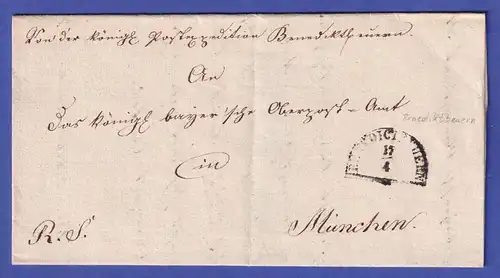 Von der königl Postexpedition Benediktbeuern.
An
Das königl bayer'sche Oberpost-Amt
Benediktbeuern
in
BENEDICTBEUERN
17
4
R. S.
München.